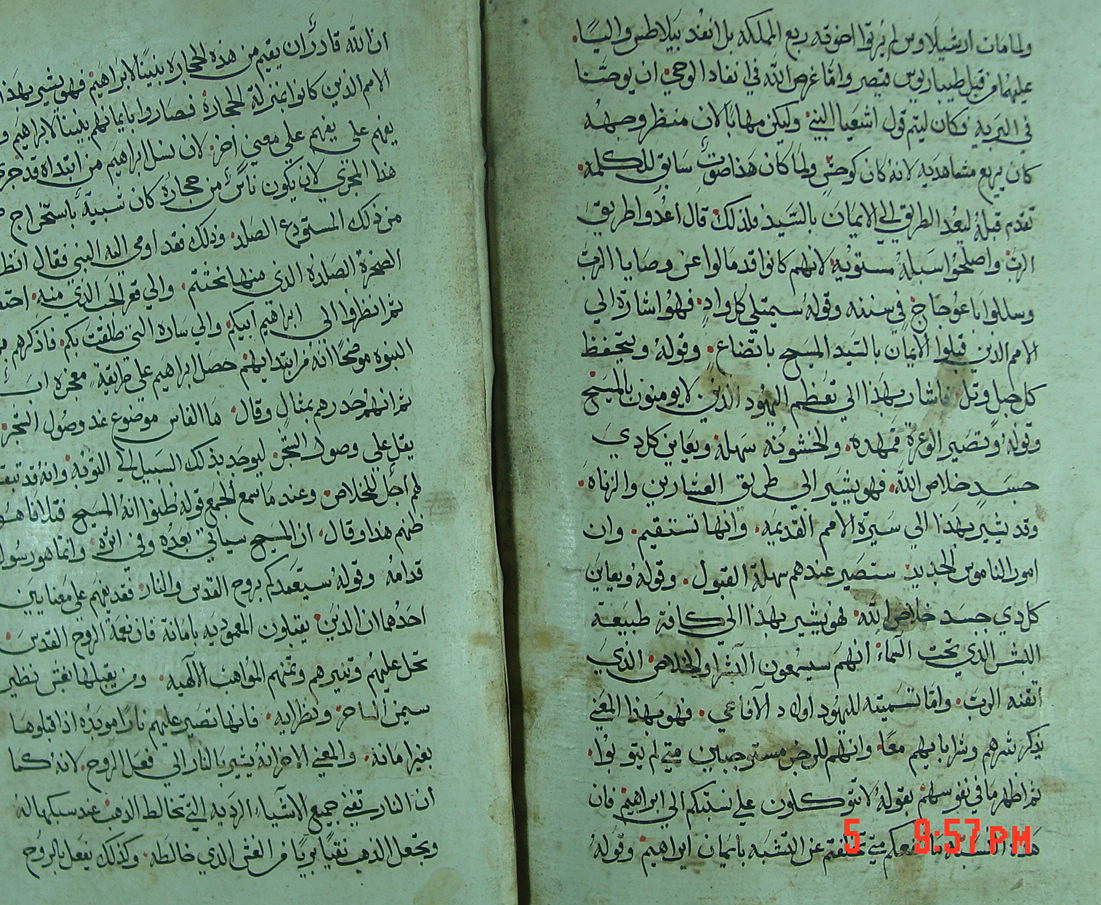 ولما مات ارشيلاوس لم يرثوا اخوته ربع المملكه بل انفد بيلاطس واليًا
عليها من قبل طيباريوس قيصر واما غرض الله في نفاد الوحي ان يوحنا
في البريه فكان ليتم قول اشعيا النبي وليكن مهابًا لان منظر وجهه
كان يريع مشاهديه لانه كان كوحش وطا كان هذا صوت سابق للكلمة
تقدم قبلهُ ليعد الطريق الي الايمان بالسيد فلذلك قال اعدوا طريق
الرب واصلحوا اسبله مستويه لانهم كانوا قد مالوا عن وصايا الرب
وسلكوا باعوجاج في سننه وقوله سيمتلي كل وادٍ فهو اشارة الي
الامم الدين قبلوا الايمان بالسيد المسيح باتضاع وقوله ويتحفظ
كل جبل وتل فاشار بهذا الي تعظم اليهود الذين لا يومنون بالمسيح
وقوله وتصير الوعرة ممهده والخشونه سهله ويعاين كل دي
جسد خلاص الله فهو يشير الي طريق العشارين والزناه
وقد يشير بهذا الي سيرة الامم القديمه وانها تستقيم وان
امور الناموس الجديد ستصير عندهم سهلة القبول وقوله ويعاين
كل دي جسد خلاص الله فهو يشير بهذا الي كافة طبيعة
البشر الذي تحت السماء انهم سيسمعون البشر والخلاص الذي
اتقنه الرب واما تسميته لليهود اولاد الافاعي فهو بهذا المعني
يذكر شرهم وشر ابايهم معًا وانهم للرجز مسترجيين متي لم يتوبوا
ثم اظهر ما في نفوسهم بقوله لا تتوكلون علي نسبتكم الي ابراهيم فان
هذه النسبة ما تنفعكم متي تخلفتم عن التشبه بايمان ابراهيم وقوله
ان الله قادر ان يقيم من هذه الحجاره بنينًا لابراهيم فهو يشير بهذا
الامم الذين كانوا بمنزلة الحجاره فصاروا بايمانهم بنينًا لابراهيم
يفهم علي معني اخر لان نسل ابراهيم من ابتداه قد جري
هذا المجري لان يكون ناسٌ من حجاره كان شبيه باستخراج
من ذلك المستودع الصلد وذلك فقد اومي اليه النبي فقال انظروا
الصخرة الصلده الذي منها نحتتم والي الذي منه
ثم انظروا الي ابراهيم ابيكم والي ساره التي طلقت بكم فاذكرهم
النبوه موضحًا انه من ابتدايهم حصل ابراهيم علي طريقة معجزه اب
ثم انه حدرهم بمثال وقال ها الفاس موضوع عند وصول الشجر
يقل علي وصول الشجر ليوجد بذلك السبيل الي التوبه وانه قد تبقت
لهم اجل للخلاص وعند ما سمع الجمع قوله ظنوا انه المسيح
ظنهم هذا وقال ان المسيح سياتي بعده وفي اثره وانما هو رسول
قدامه وقوله سيعمدكم بروح القدس والنار فقد يفهم علي معنايين
احدهما ان الذين يقبلون المعموديه بامانة فان نعمة الروح القدس
تحل عليهم وتنيرهم وتمنحهم المواهب الالهيه ومن يقبلها بغش نظير
سيمن الساحر ونظرايه فانها تصير عليهم نارًا موبده اذا قبلوها
بغير امانه والمعني الاخر انه يشير بالنار الي فعل الروح لانه كما
ان النار تفني جميع الاشياء الرديه التي تخالط الدهب عند سبكها له
وتجعل الدهب نقيًا بريًا من الغش الذي خالطه وكذلك يفعل بالروح
5 9:57 PM